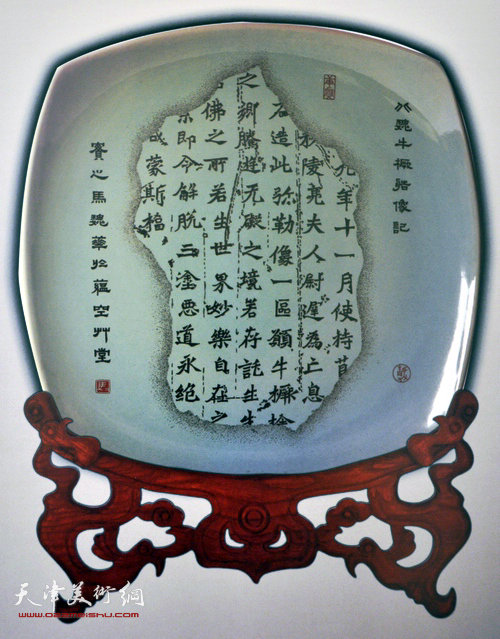 北魏牛橛造像記
九年十一月使持節
陵亮夫人尉遲為亡息
石造此弥勒像一區願牛橛捨
之鄉騰遊无礙之境若存託生生
佛之所若生世界妙樂自在之
累即令解脫三塗惡道永絕
咸蒙斯福
馬魏華於蘊空艸堂
天津美術網